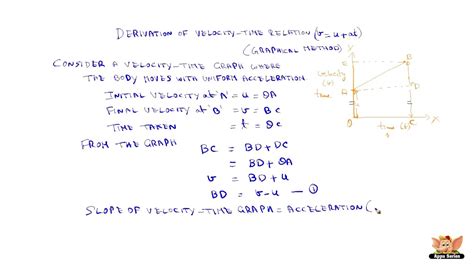 DERIVATION OF VELOCITY-TIME RELATION (v = u + at)
(GRAPHICAL METHOD)
CONSIDER A VELOCITY-TIME GRAPH WHERE
THE BODY MOVES WITH UNIFORM ACCELERATION
INITIAL VELOCITY at 'A' = u = OA
FINAL VELOCITY at 'B' = v = BC
TIME TAKEN = t = OC
FROM THE GRAPH BC = BD + DC
= BD + OA
v = BD + u
BD = v - u — ①
SLOPE OF VELOCITY-TIME GRAPH = ACCELERATION (
Y
B
velocity
(v)
A
D
time
O
C
X
time (t)
Appu Series